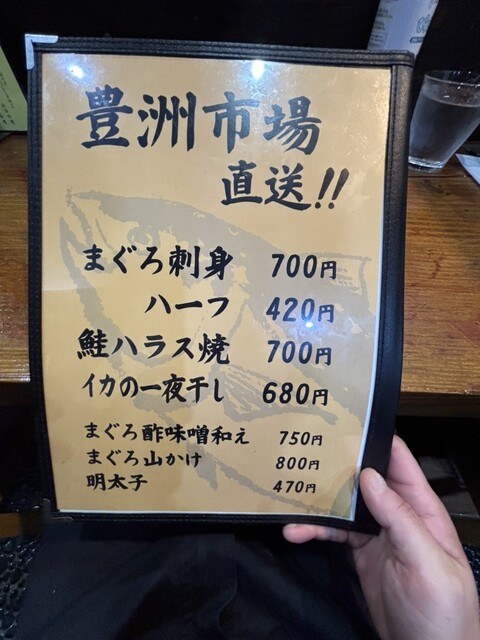 豊洲市場
直送!!
まぐろ刺身 700円
ハーフ 420円
鮭ハラス焼 700円
イカの一夜干し 680円
まぐろ酢味噌和え 750円
まぐろ山かけ 800円
明太子 470円